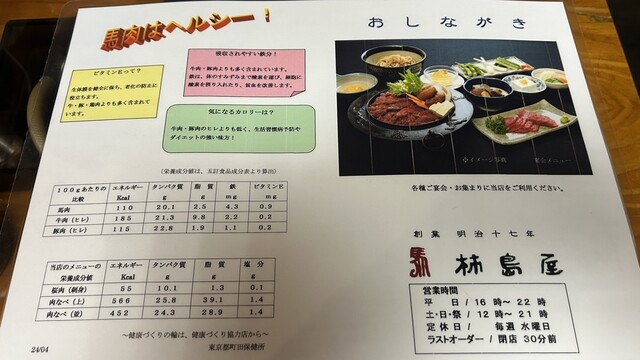 馬肉はヘルシー！
ビタミンEって？
生体膜を健全に保ち、老化の防止に
役立ちます。
牛・豚・鶏肉よりも多く含まれて
います。
吸収されやすい鉄分！
牛肉・豚肉よりも多く含まれています。
鉄は、体のすみずみまで酸素を運び、細胞に
酸素を摂り入れたり、貧血を改善します。
気になるカロリーは？
牛肉・豚肉のヒレよりも低く、生活習慣病予防や
ダイエットの強い味方！
（栄養成分値は、五訂食品成分表より算出）
100gあたりの比較 エネルギー Kcal タンパク質 g 脂質 g 鉄 mg ビタミンE mg
馬肉 110 20.1 2.5 4.3 0.9
牛肉（ヒレ） 185 21.3 9.8 2.2 0.2
豚肉（ヒレ） 115 22.8 1.9 1.1 0.2
当店のメニューの栄養成分値 エネルギー Kcal タンパク質 g 脂質 g 塩分 g
桜肉（刺身） 55 10.1 1.3 0.1
肉なべ（上） 566 25.8 39.1 1.4
肉なべ（並） 452 24.3 28.9 1.4
～健康づくりの輪は、健康づくり協力店から～
24/04
東京都町田保健所
おしながき
※イメージ写真
各種ご宴会・お集まりに当店をご利用ください。
創業 明治十七年
馬 柿島屋
営業時間
平 日 / 16 時～ 22 時
土・日・祭 / 12 時～ 21 時
定 休 日 / 毎週 水曜日
ラストオーダー / 閉店 30分前